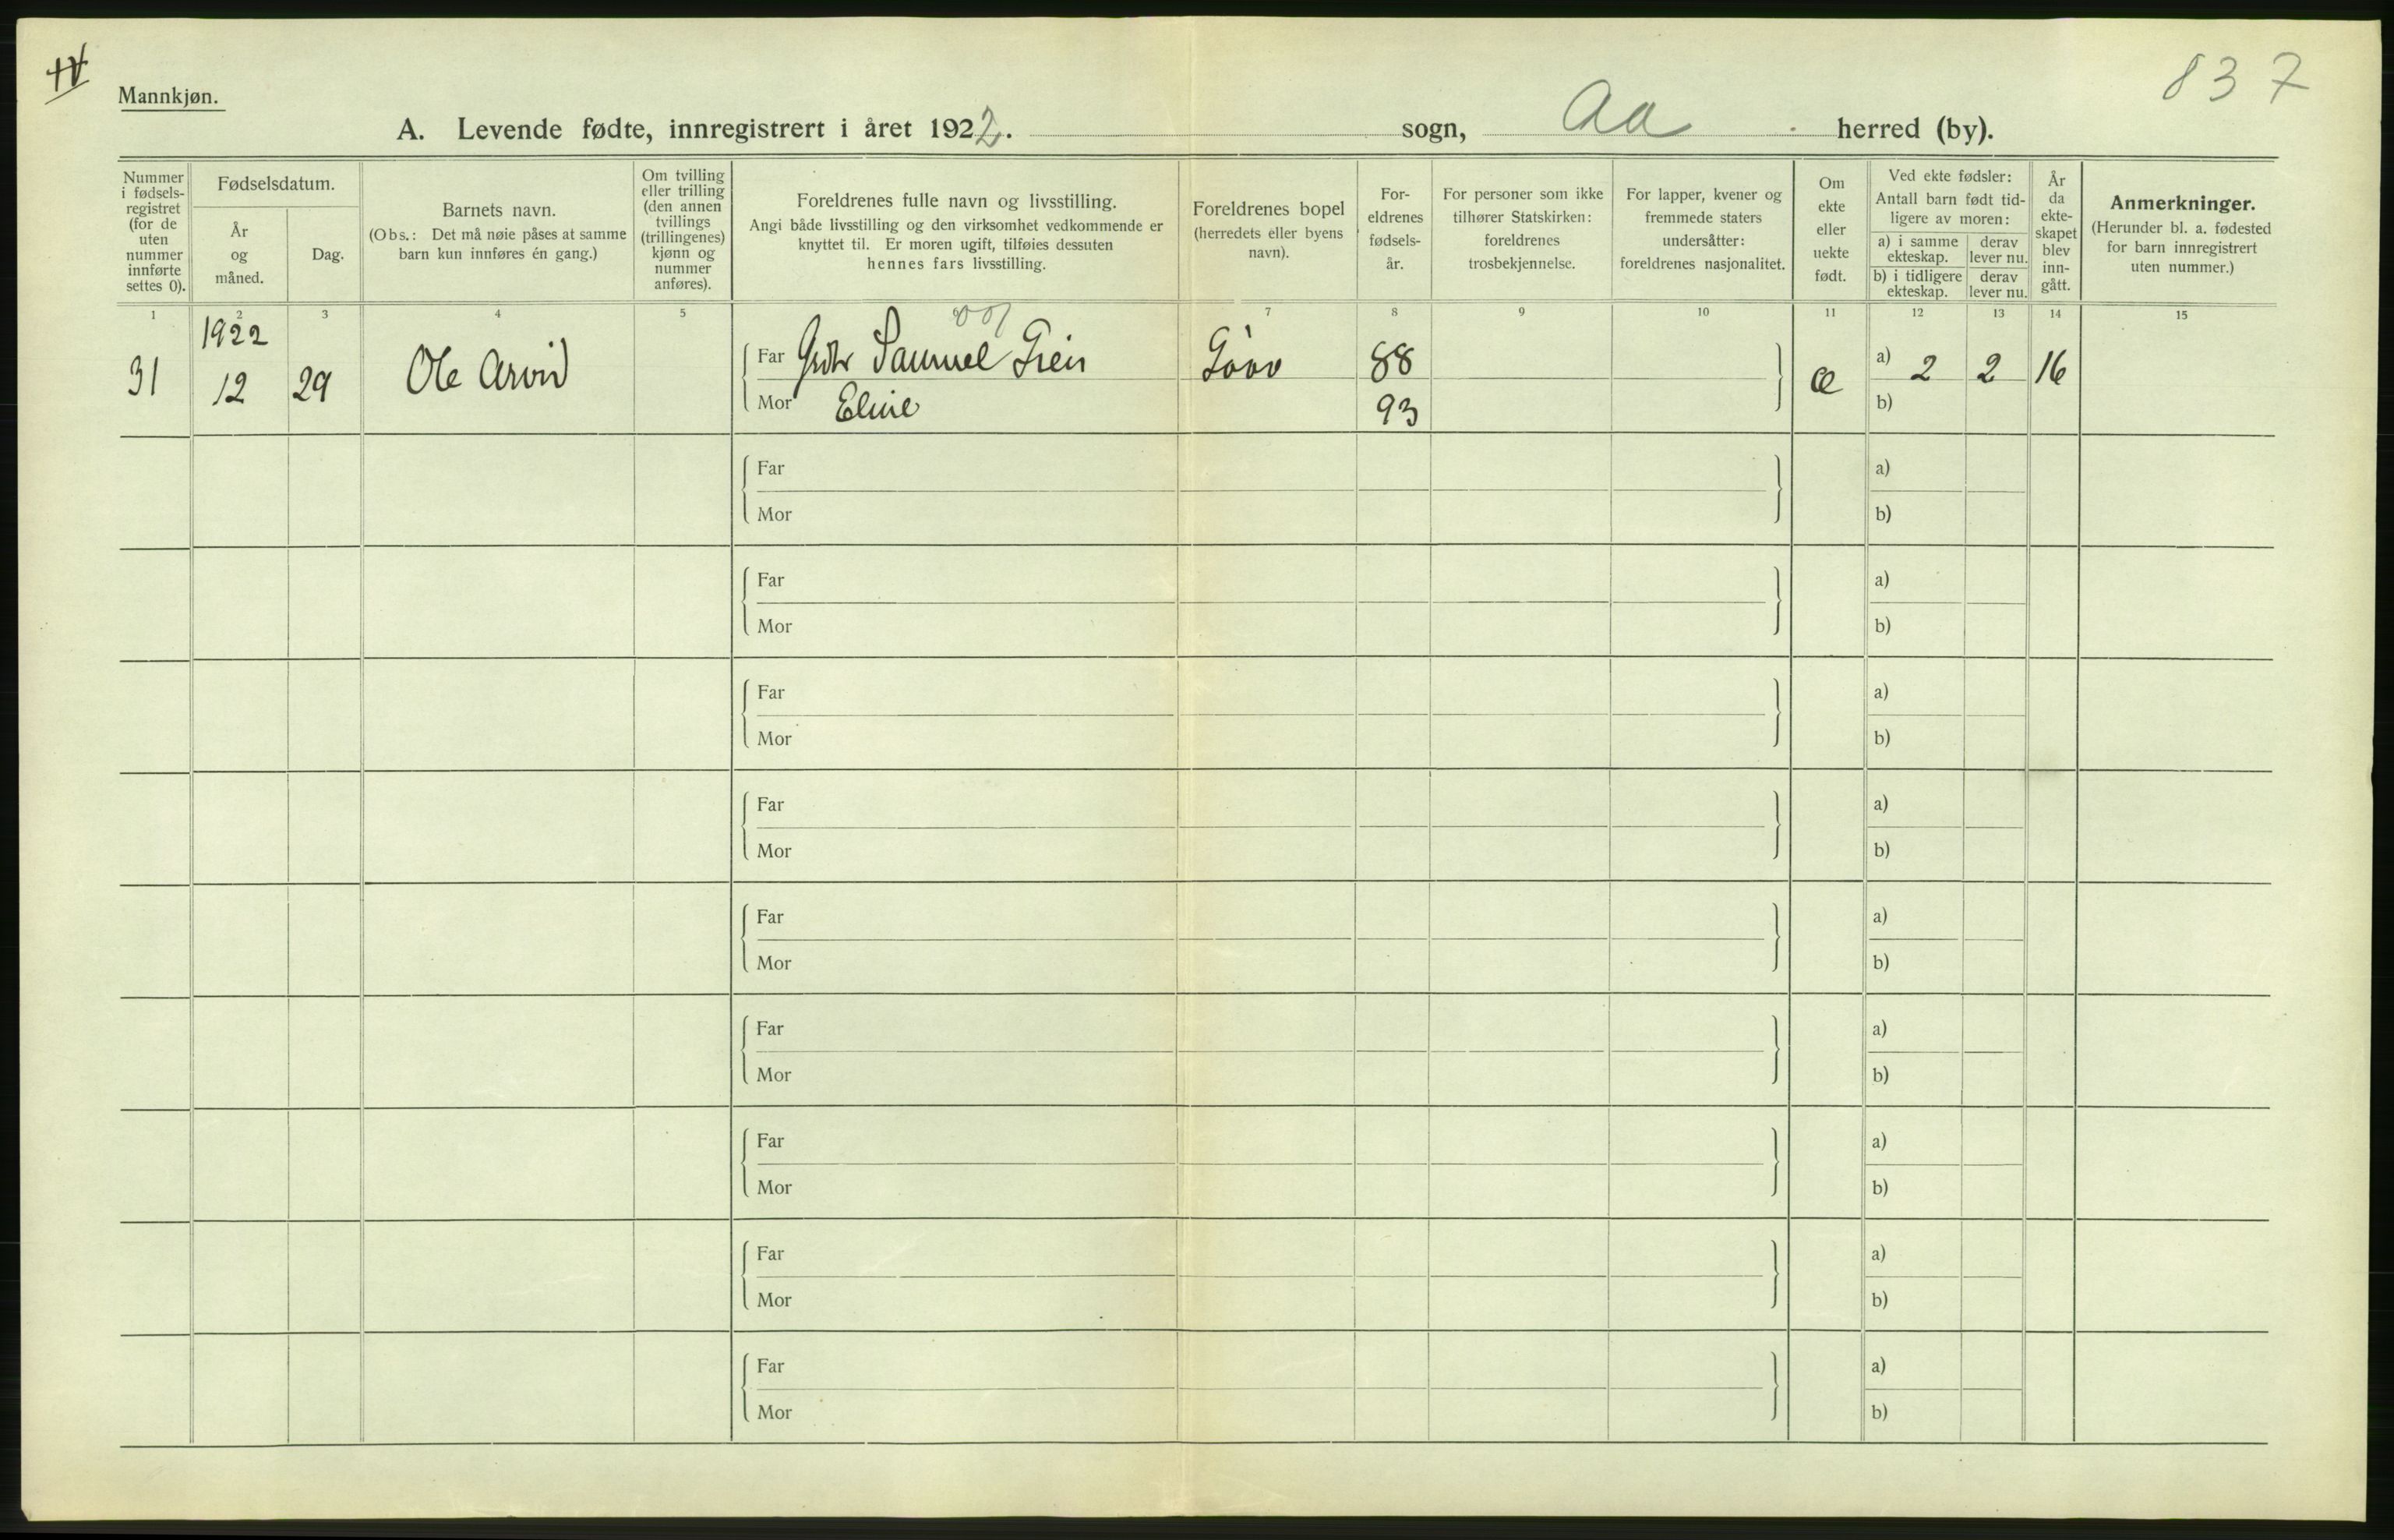 837
Mannkjøn.
A. Levende fødte, innregistrert i året 1922. sogn, Aa herred (by).
Nummer i fødsels- registret (for de uten nummer innførte settes 0).
Fødselsdatum.
År og måned.
Dag.
Barnets navn.
(Obs.: Det må nøie påses at samme barn kun innføres én gang.)
Om tvilling eller trilling (den annen tvillings (trillingenes) kjønn og nummer anføres).
Foreldrenes fulle navn og livsstilling.
Angi både livsstilling og den virksomhet vedkommende er knyttet til. Er moren ugift, tilføies dessuten hennes fars livsstilling.
Foreldrenes bopel (herredets eller byens navn).
For- eldrenes fødsels- år.
For personer som ikke tilhører Statskirken: foreldrenes trosbekjennelse.
For lapper, kvener og fremmede staters undersåtter: foreldrenes nasjonalitet.
Om ekte eller uekte født.
Ved ekte fødsler:
Antall barn født tid- ligere av moren:
a) i samme ekteskap.
derav lever nu.
b) i tidligere ekteskap.
derav lever nu.
År da ekte- skapet blev inn- gått.
Anmerkninger.
(Herunder bl. a. fødested for barn innregistrert uten nummer.)
1 2 3 4 5 7 8 9 10 11 12 13 14 15
1922
31 12 29 Ole Arvid Far Samuel 88 a) 2 2 16
Mor Eline 93 b)
Far a)
Mor b)
Far a)
Mor b)
Far a)
Mor b)
Far a)
Mor b)
Far a)
Mor b)
Far a)
Mor b)
Far a)
Mor b)
Far a)
Mor b)
Far a)
Mor b)